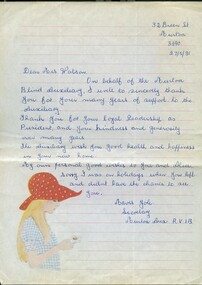 Dear Mrs Watson
On behalf of the
Blind Auxiliary, I wish to sincerely thank
you for your many years of support to the
Auxiliary.
Thanks you for your Loyal Leadership as
President and your kindness and generosity
over many years
The Auxiliary wish you good health and happiness
in your new home.
My own personal good wishes to you and
song I was on holidays when you left
and didnt have the chance to see
you.
Secretary
R.V.I.B.